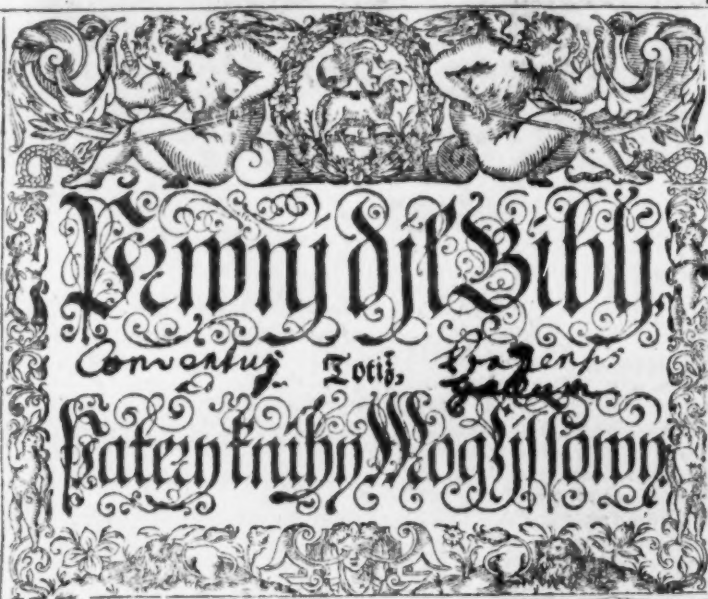 Prwnj djl Biblj,
Conventus Totiž, Pragensis
Patery knihy Mogžjssowy.